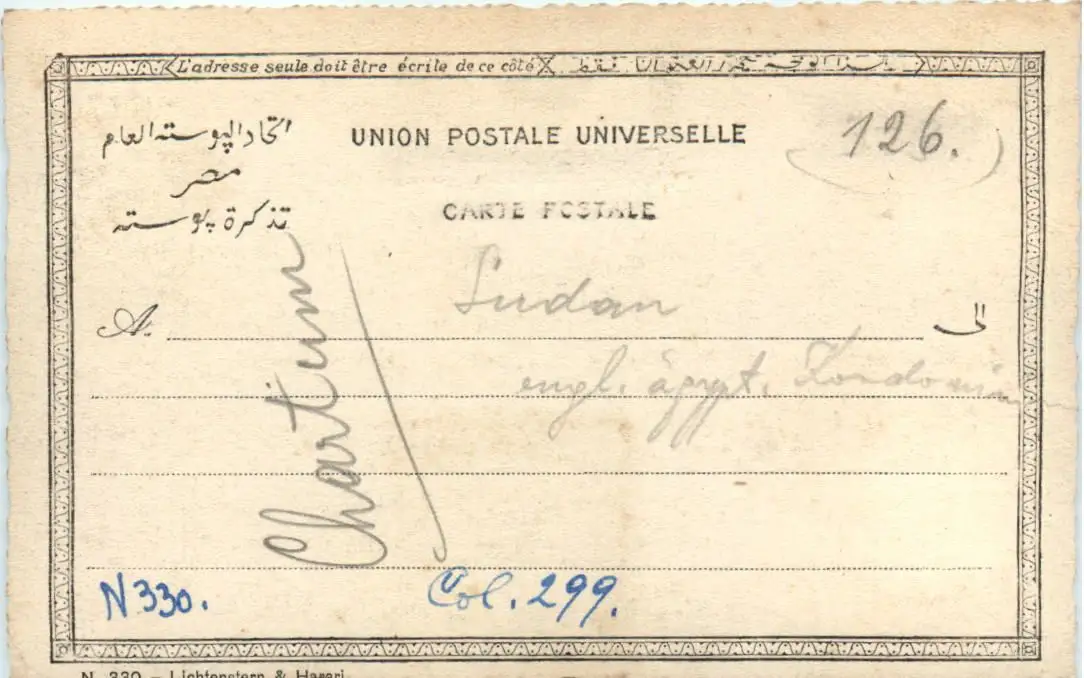 L'adresse seule doit être écrite de ce côté
اتحاد البوسته العام
UNION POSTALE UNIVERSELLE
126.
مصر
تذكرة بوسته
CARTE POSTALE
Sudan
A.
الى
engl. ägypt.
Chartum
N 330.
Col. 299.
N. 330 – Lichtenstern & Harari.